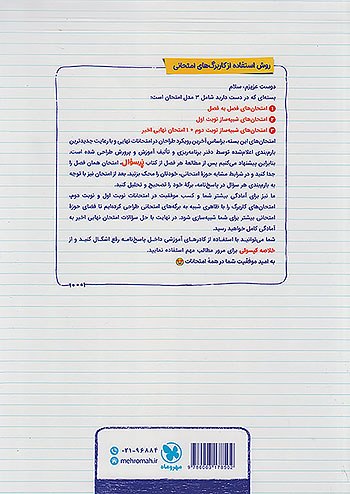 روش استفاده از کاربرگ‌های امتحانی
دوست عزیزم، سلام
بسته‌ای که در دست دارید شامل ۳ مدل امتحان است:
۱ امتحان‌های فصل به فصل
۲ امتحان‌های شبیه‌ساز نوبت اول
۳ امتحان‌های شبیه‌ساز نوبت دوم + ۱ امتحان نهایی اخیر
امتحان‌های این بسته، براساس آخرین رویکرد طراحان در امتحانات نهایی و با رعایت جدیدترین
بارم‌بندی اعلام‌شده توسط دفتر برنامه‌ریزی و تألیف آموزش و پرورش طراحی شده است.
بنابراین پیشنهاد می‌کنیم پس از مطالعهٔ هر فصل از کتاب پُرسؤال، امتحان همان فصل را
جدا کنید و در شرایط مشابه حوزهٔ امتحانی، خودتان را محک بزنید. بعد از امتحان نیز با توجه
به بارم‌بندی هر سؤال در پاسخ‌نامه، برگهٔ خود را تصحیح و تحلیل کنید.
ما نیز برای آمادگی بیشتر شما و کسب موفقیت در امتحانات نوبت اول و نوبت دوم،
امتحان‌های کاربرگ را با ظاهری شبیه به برگه‌های امتحانی طراحی کرده‌ایم تا فضای حوزهٔ
امتحانی بیشتر برای شما شبیه‌سازی شود. در نهایت با حل سؤالات امتحان نهایی اخیر به
آمادگی کامل خواهید رسید.
شما می‌توانید با استفاده از کادرهای آموزشی داخل پاسخ‌نامه رفع اشکال کنید و از
خلاصه کپسولی برای مرور مطالب مهم استفاده نمایید.
به امید موفقیت شما در همهٔ امتحانات
۰۲۱-۹۶۸۸۴
mehromah.ir
مهروماه
9786003179502